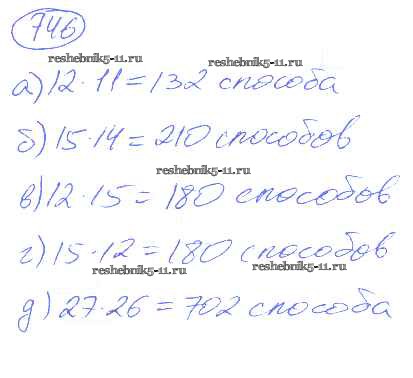 746
reshebnik5-11.ru
а) 12 · 11 = 132 способа
reshebnik5-11.ru
б) 15 · 14 = 210 способов
reshebnik5-11.ru
в) 12 · 15 = 180 способов
г) 15 · 12 = 180 способов
reshebnik5-11.ru
reshebnik5-11.ru
д) 27 · 26 = 702 способа